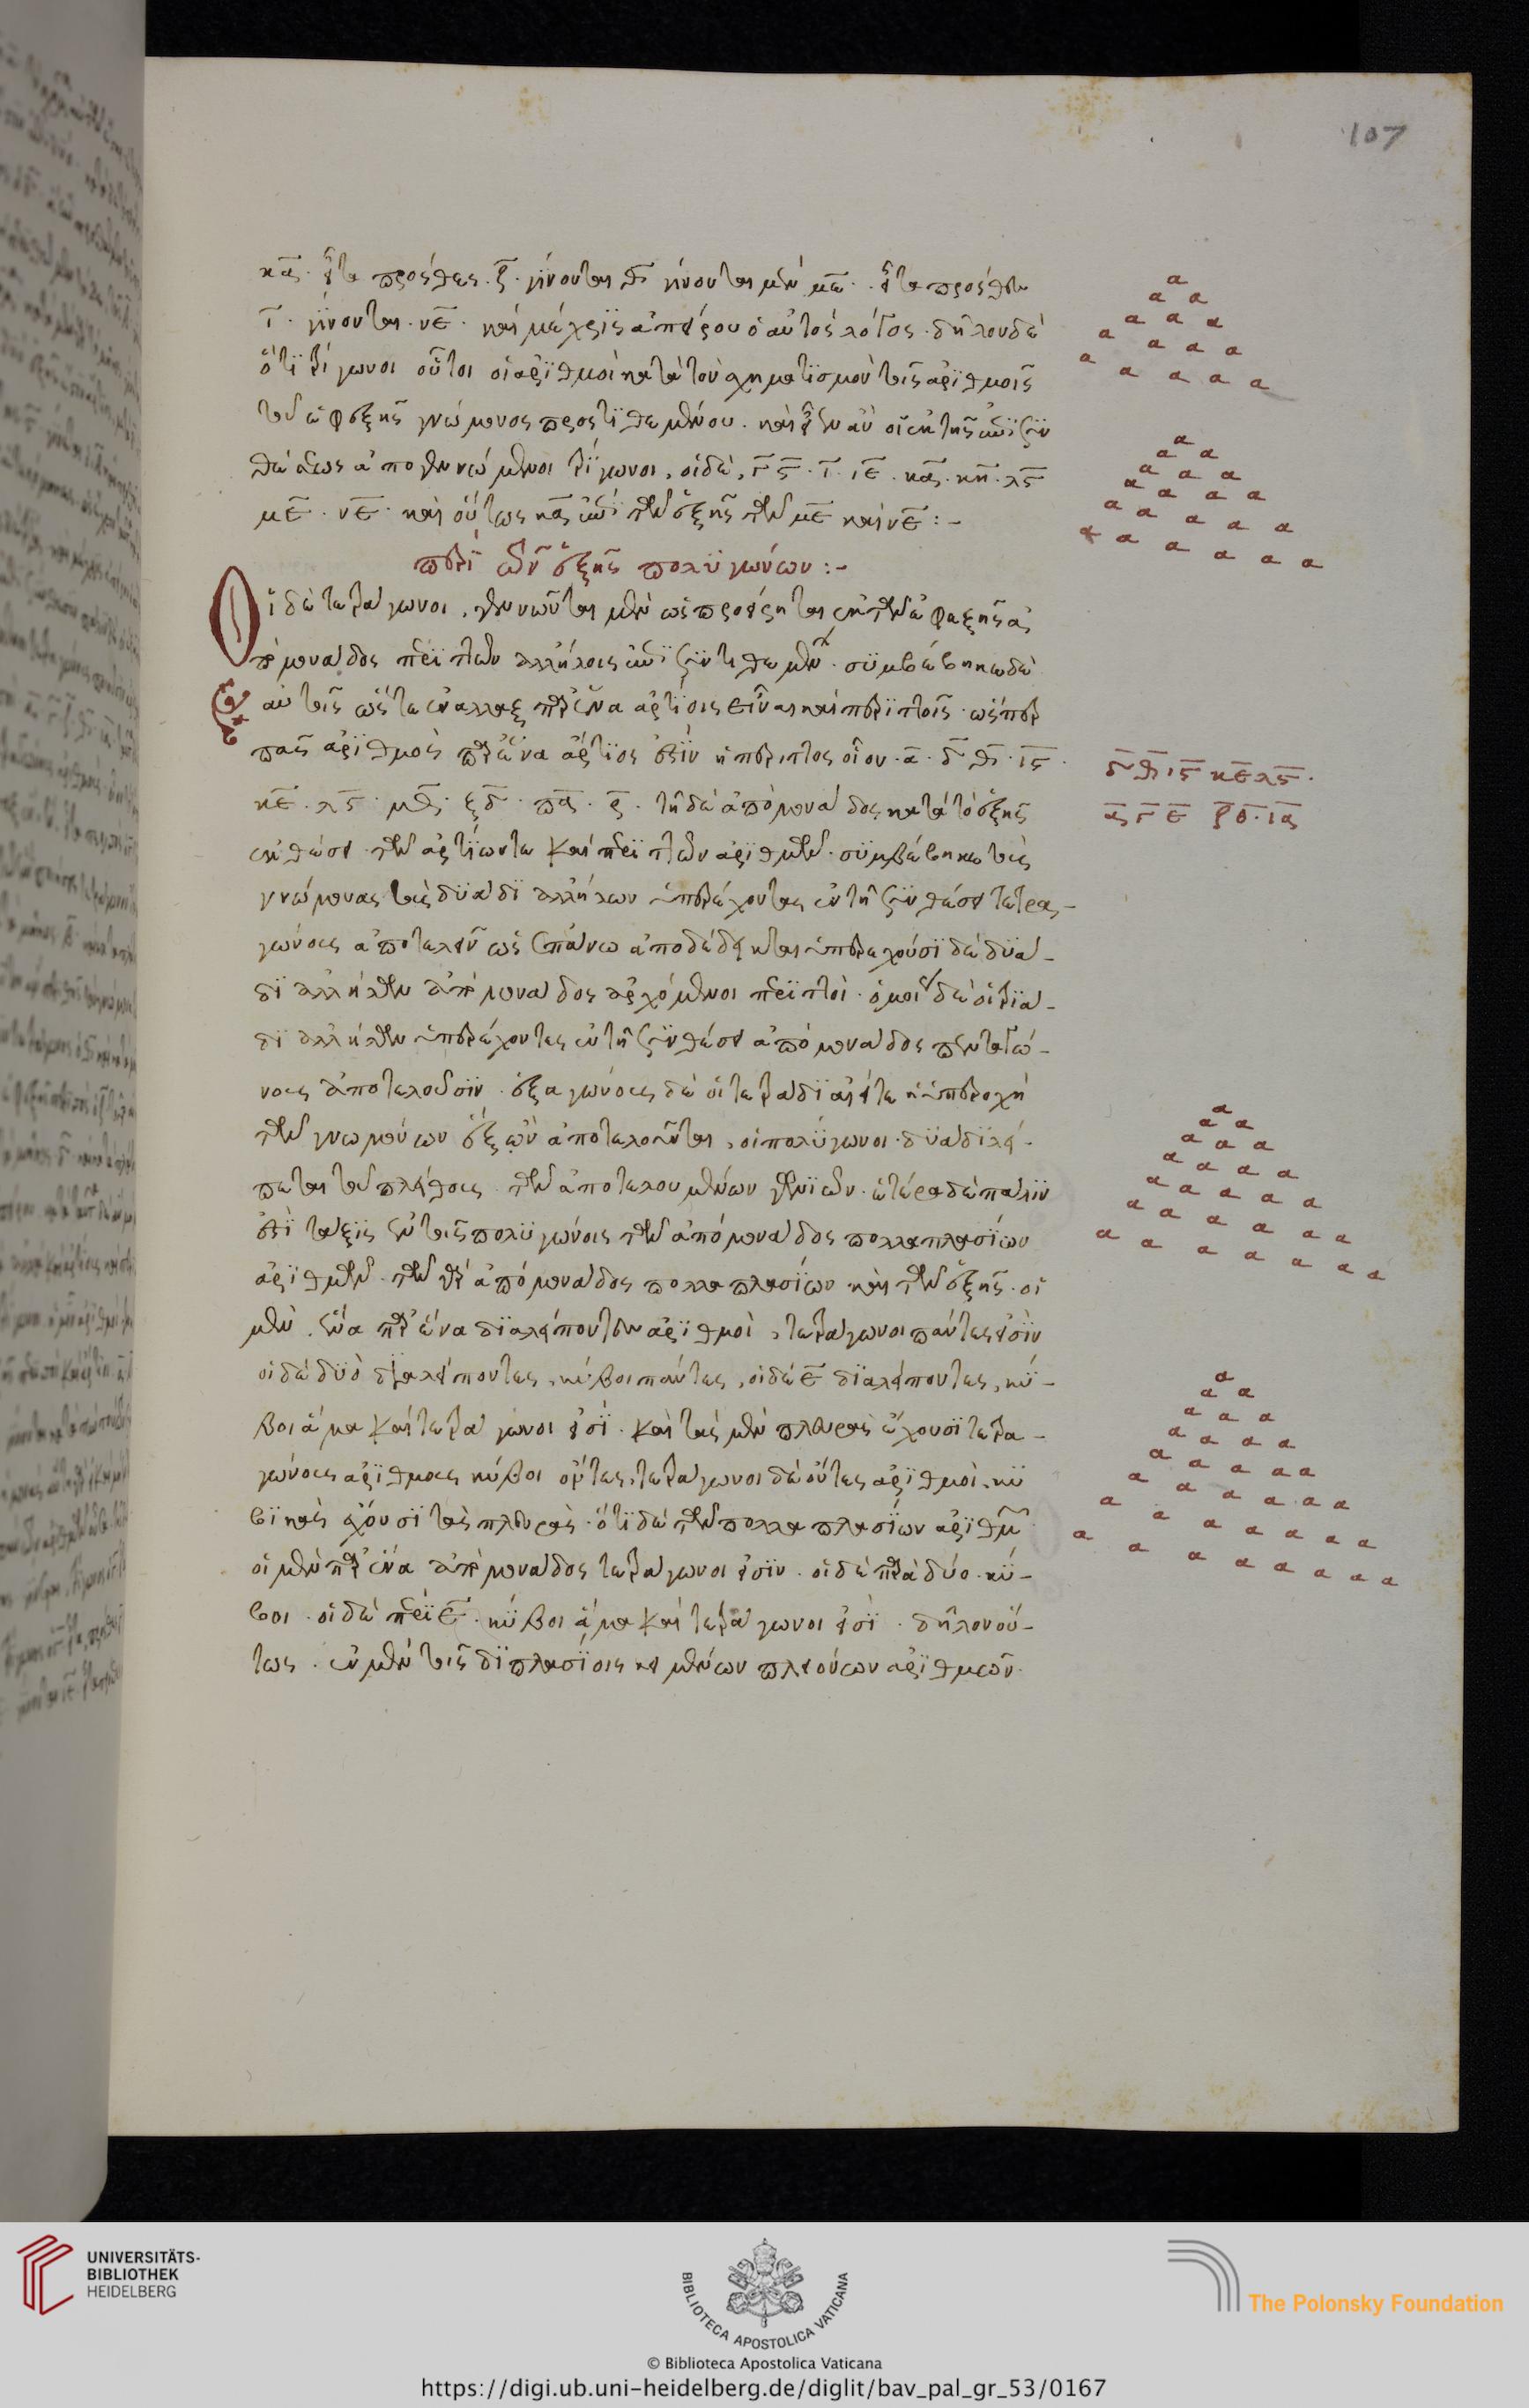 107
κα̅. εἶτα πρόσθες. ζ̅. γίνονται
ι̅. γίνονται. νε̅. καὶ μέχρις ἀπείρου ὁ αὐτὸς λόγος. δῆλον δὲ
ὅτι τρίγωνοι οὗτοι οἱ ἀριθμοὶ κατὰ τὸν σχηματισμὸν τοῖς ἀριθμοῖς
γνώμονος προστιθεμένου. καὶ
τρίγωνοι, οἵδε, γ̅ ς̅. ι̅. ιε̅. κα̅. κη̅. λς̅
με̅. νε̅. καὶ οὕτως καὶ ἐπὶ τῶν ἑξῆς τῶν με̅ καὶ νε̅:-
περὶ τῶν ἑξῆς πολυγώνων:-
Οἱ δὲ τετράγωνοι, γεννῶνται μὲν ὡς προείρηται ἐκ τῶν ἐφεξῆς ἀ
πὸ μονάδος περιττῶν ἀλλήλοις ἐπισυντιθεμένων. συμβέβηκε δὲ
αὐτοῖς ὥστε ἐναλλὰξ παρ' ἕνα ἀρτίοις εἶναι καὶ περιττοῖς. ὥσπερ
πᾶς ἀριθμὸς παρ' ἕνα ἄρτιος ἐστὶν ἢ περιττὸς οἷον. α̅. δ̅. θ̅. ις̅.
κε̅. λς̅. μθ̅. ξδ̅. πα̅. ρ̅. τῇ δὲ ἀπὸ μονάδος κατὰ τὸ ἑξῆς
ἐκθέσει τῶν ἀρτίων τε καὶ περιττῶν ἀριθμῶν. συμβέβηκε τοὺς
γνώμονας τοὺς δυάδι ἀλλήλων ὑπερέχοντας ἐν τῇ συνθέσει τετρα-
γώνους ἀποτελεῖν ὡς ἐπάνω ἀποδέδεικται ὑπερέχουσι δὲ δυά-
δι ἀλλήλων ἀπὸ μονάδος ἀρχόμενοι περιττοί. ὁμοίως δὲ οἱ τριά-
δι ἀλλήλων ὑπερέχοντες ἐν τῇ συνθέσει ἀπὸ μονάδος πενταγώ-
νους ἀποτελοῦσιν. ἑξαγώνους δὲ οἱ τετράδι αἰεί τε ἡ ὑπεροχὴ
τῶν γνωμόνων ἐξ ὧν ἀποτελοῦνται, οἱ πολύγωνοι. δυάδι λεί-
πεται τοῦ πλήθους τῶν ἀποτελουμένων γωνιῶν. ἑτέρα δὲ πάλιν
ἐστὶ τάξις ἐν τοῖς πολυγώνοις τῶν ἀπὸ μονάδος πολλαπλασίων
ἀριθμῶν. τῶν γὰρ ἀπὸ μονάδος πολλαπλασίων καὶ τῶν ἑξῆς. οἱ
μὲν. ἕνα παρ' ἕνα διαλείποντες ἀριθμοί, τετράγωνοι πάντες εἰσίν
οἱ δὲ δύο διαλείποντες, κύβοι πάντες, οἱ δὲ ε̅ διαλείποντες, κύ-
βοι ἅμα καὶ τετράγωνοι εἰσί. καὶ τὰς μὲν πλευρὰς ἔχουσι τετρα-
γώνους ἀριθμοὺς κύβοι ὄντες, τετράγωνοι δὲ ὄντες ἀριθμοί. κυ
βικὰς ἔχουσι τὰς πλευράς. ὅτι δὲ τῶν πολλαπλασίων ἀριθμῶν
οἱ μὲν παρ' ἕνα ἀπὸ μονάδος τετράγωνοι εἰσίν. οἱ δὲ παρὰ δύο. κύ-
βοι. οἱ δὲ παρὰ ε̅. κύβοι ἅμα καὶ τετράγωνοι εἰσί. δῆλον οὕ-
τως. ἐν μὲν τοῖς διπλασίοις κειμένων πλειόνων ἀριθμῶν.
α
α α
α α α
α α α α
α α α α α
α
α α
α α α
α α α α
α α α α α
α α α α α α
δ̅ θ̅ ις̅ κε̅ λς̅.
α̅ γ̅ ε̅ ζ̅ θ̅. ια̅
α
α α
α α α
α α α α
α α α α α
α α α α α α
α α α α α α α
α
α α
α α α
α α α α
α α α α α
α α α α α α
α α α α α α α
α α α α α α α α
UNIVERSITÄTS-
BIBLIOTHEK
HEIDELBERG
BIBLIOTECA APOSTOLICA VATICANA
The Polonsky Foundation
© Biblioteca Apostolica Vaticana
https://digi.ub.uni-heidelberg.de/diglit/bav_pal_gr_53/0167